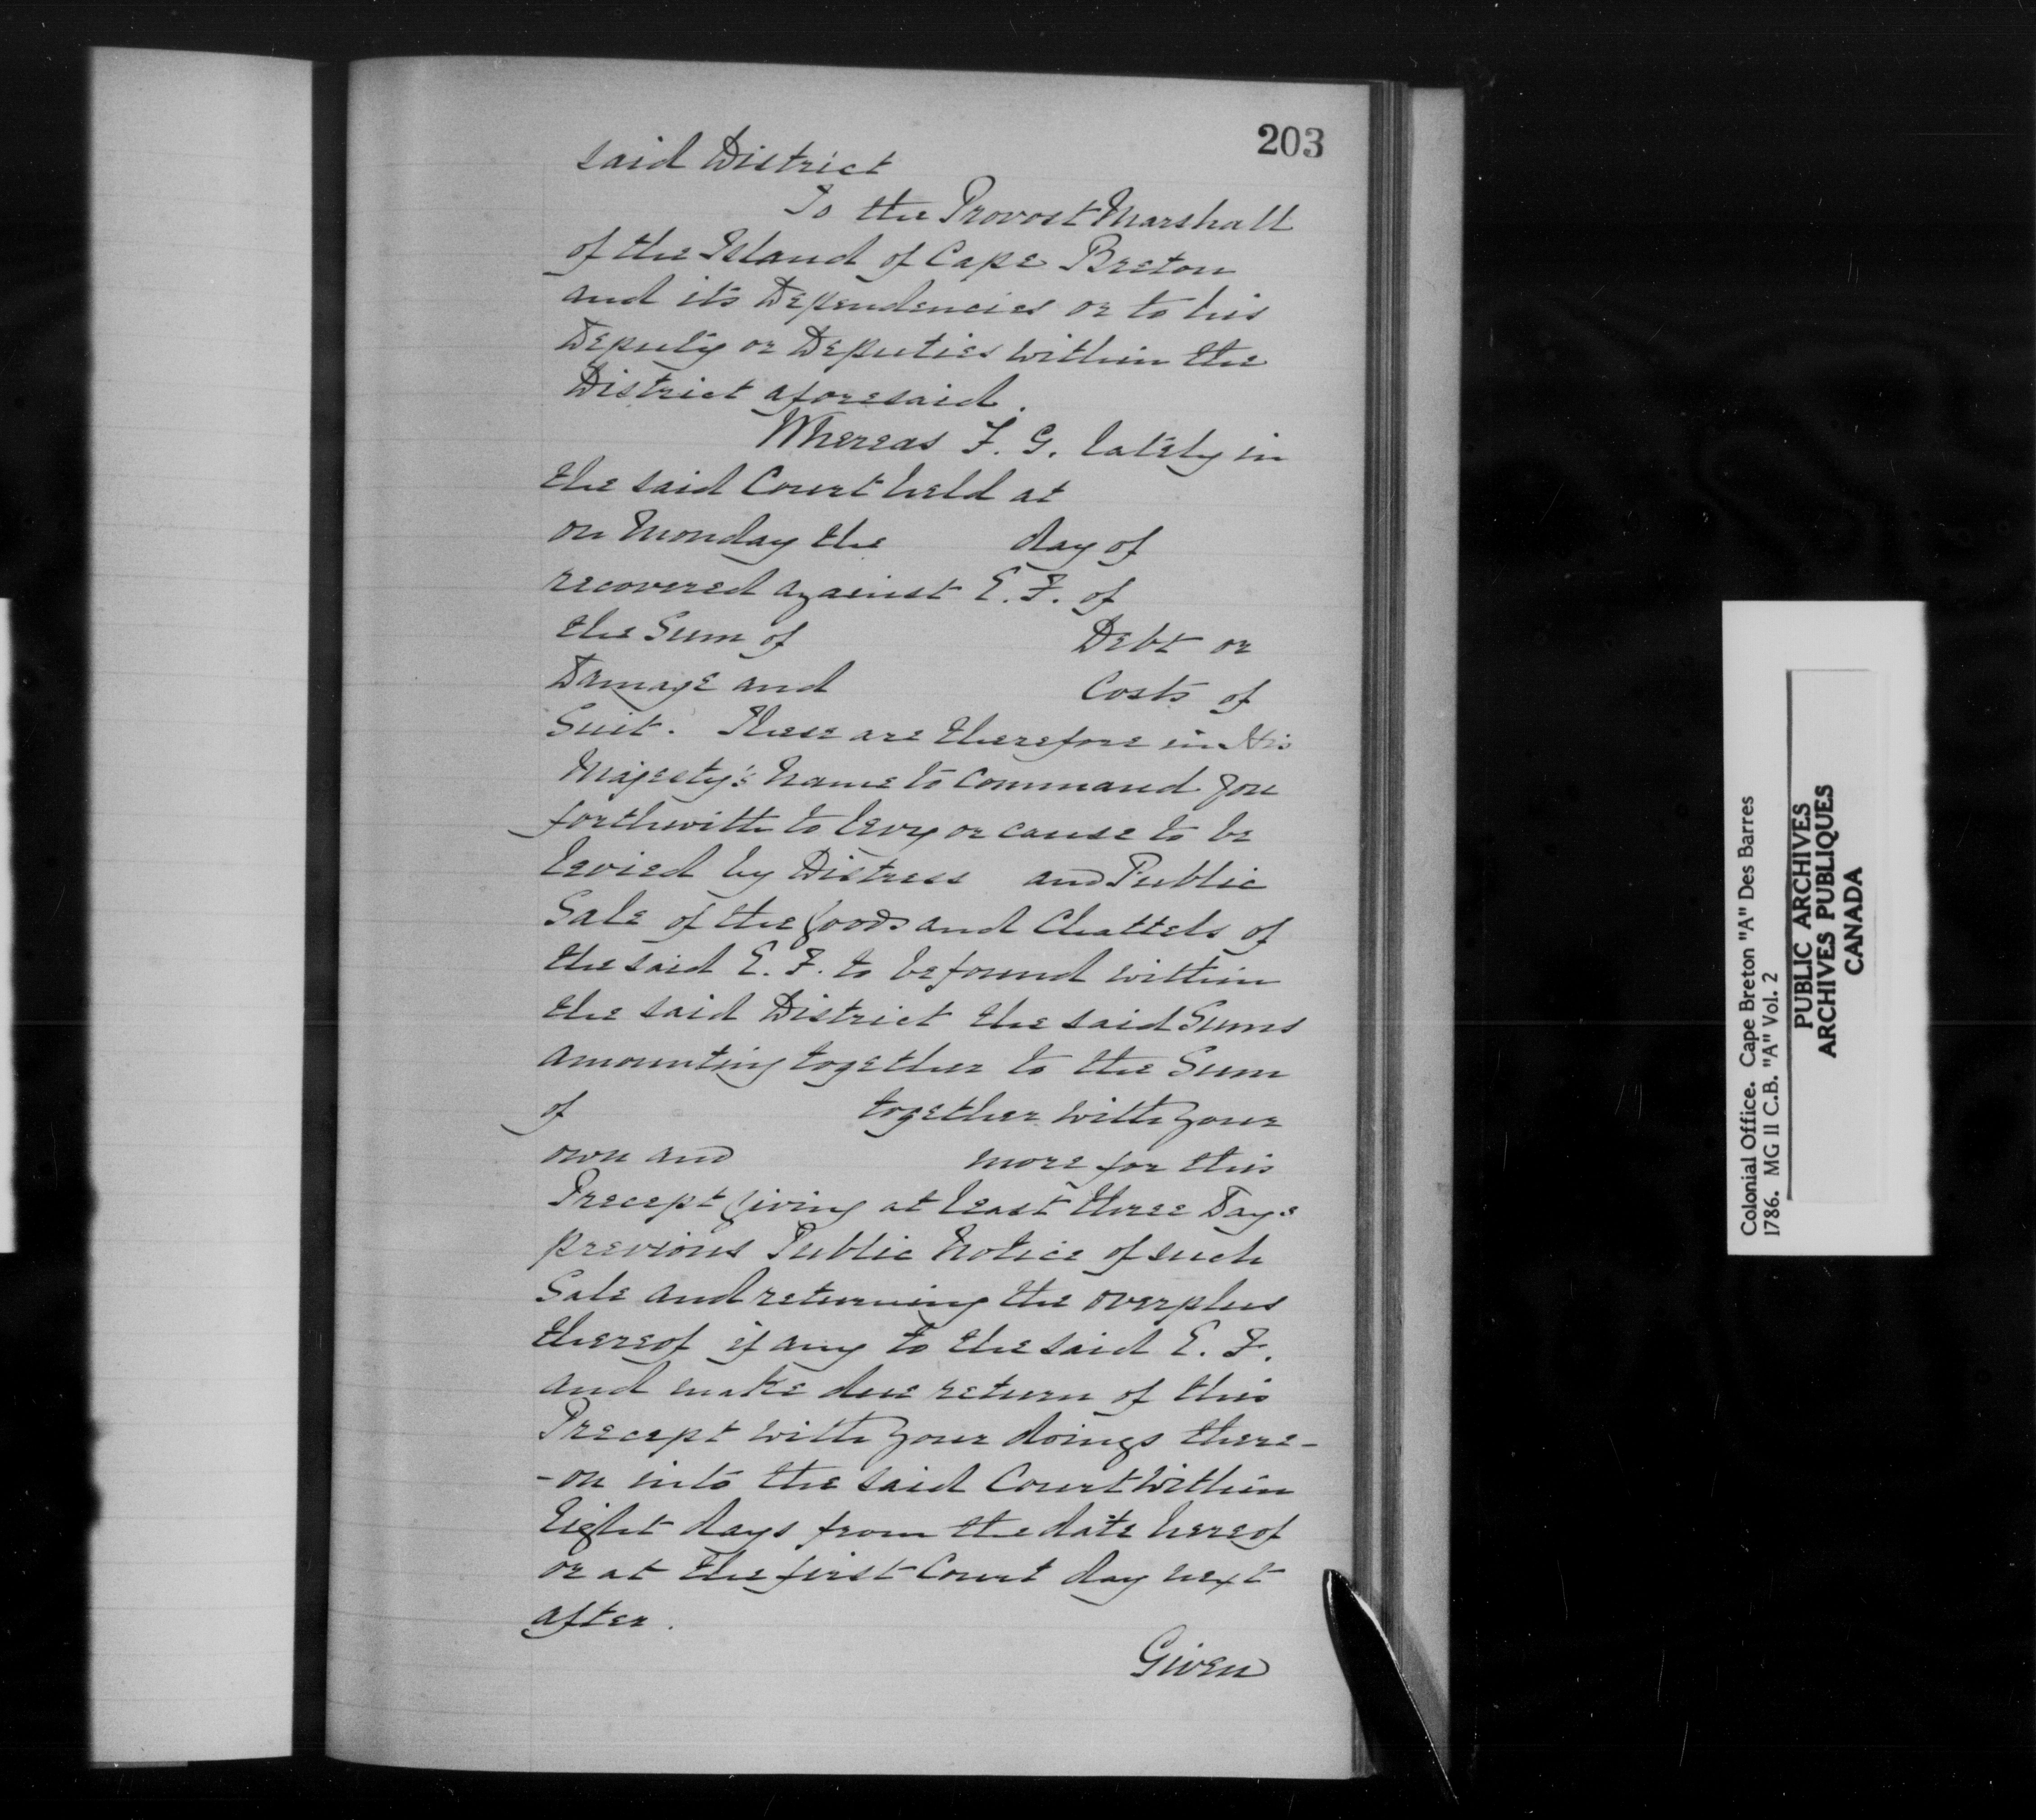 203
said District
To the Provost Marshall
of the Island of Cape Breton
and its Dependencies or to his
Deputy or Deputies within the
District aforesaid.
Whereas F. G. lately in
the said Court held at
on Monday the day of
recovered against E. F. of
the Sum of Debt or
Damage and Costs of
Suit. These are therefore in His
Majesty's Name to Command you
forthwith to levy or cause to be
levied by Distress and Public
Sale of the Goods and Chattels of
the said E. F. to be found within
the said District the said Sums
amounting together to the Sum
of together with your
own and more for this
Precept giving at least three Days
previous Public Notice of such
Sale and returning the overplus
thereof if any to the said E. F.
and make due return of this
Precept with your doings there-
-on into the said Court within
Eight days from the date hereof
or at the first Court day next
after.
Given
Colonial Office. Cape Breton "A" Des Barres
1786. MG 11 C.B. "A" Vol. 2
PUBLIC ARCHIVES
ARCHIVES PUBLIQUES
CANADA